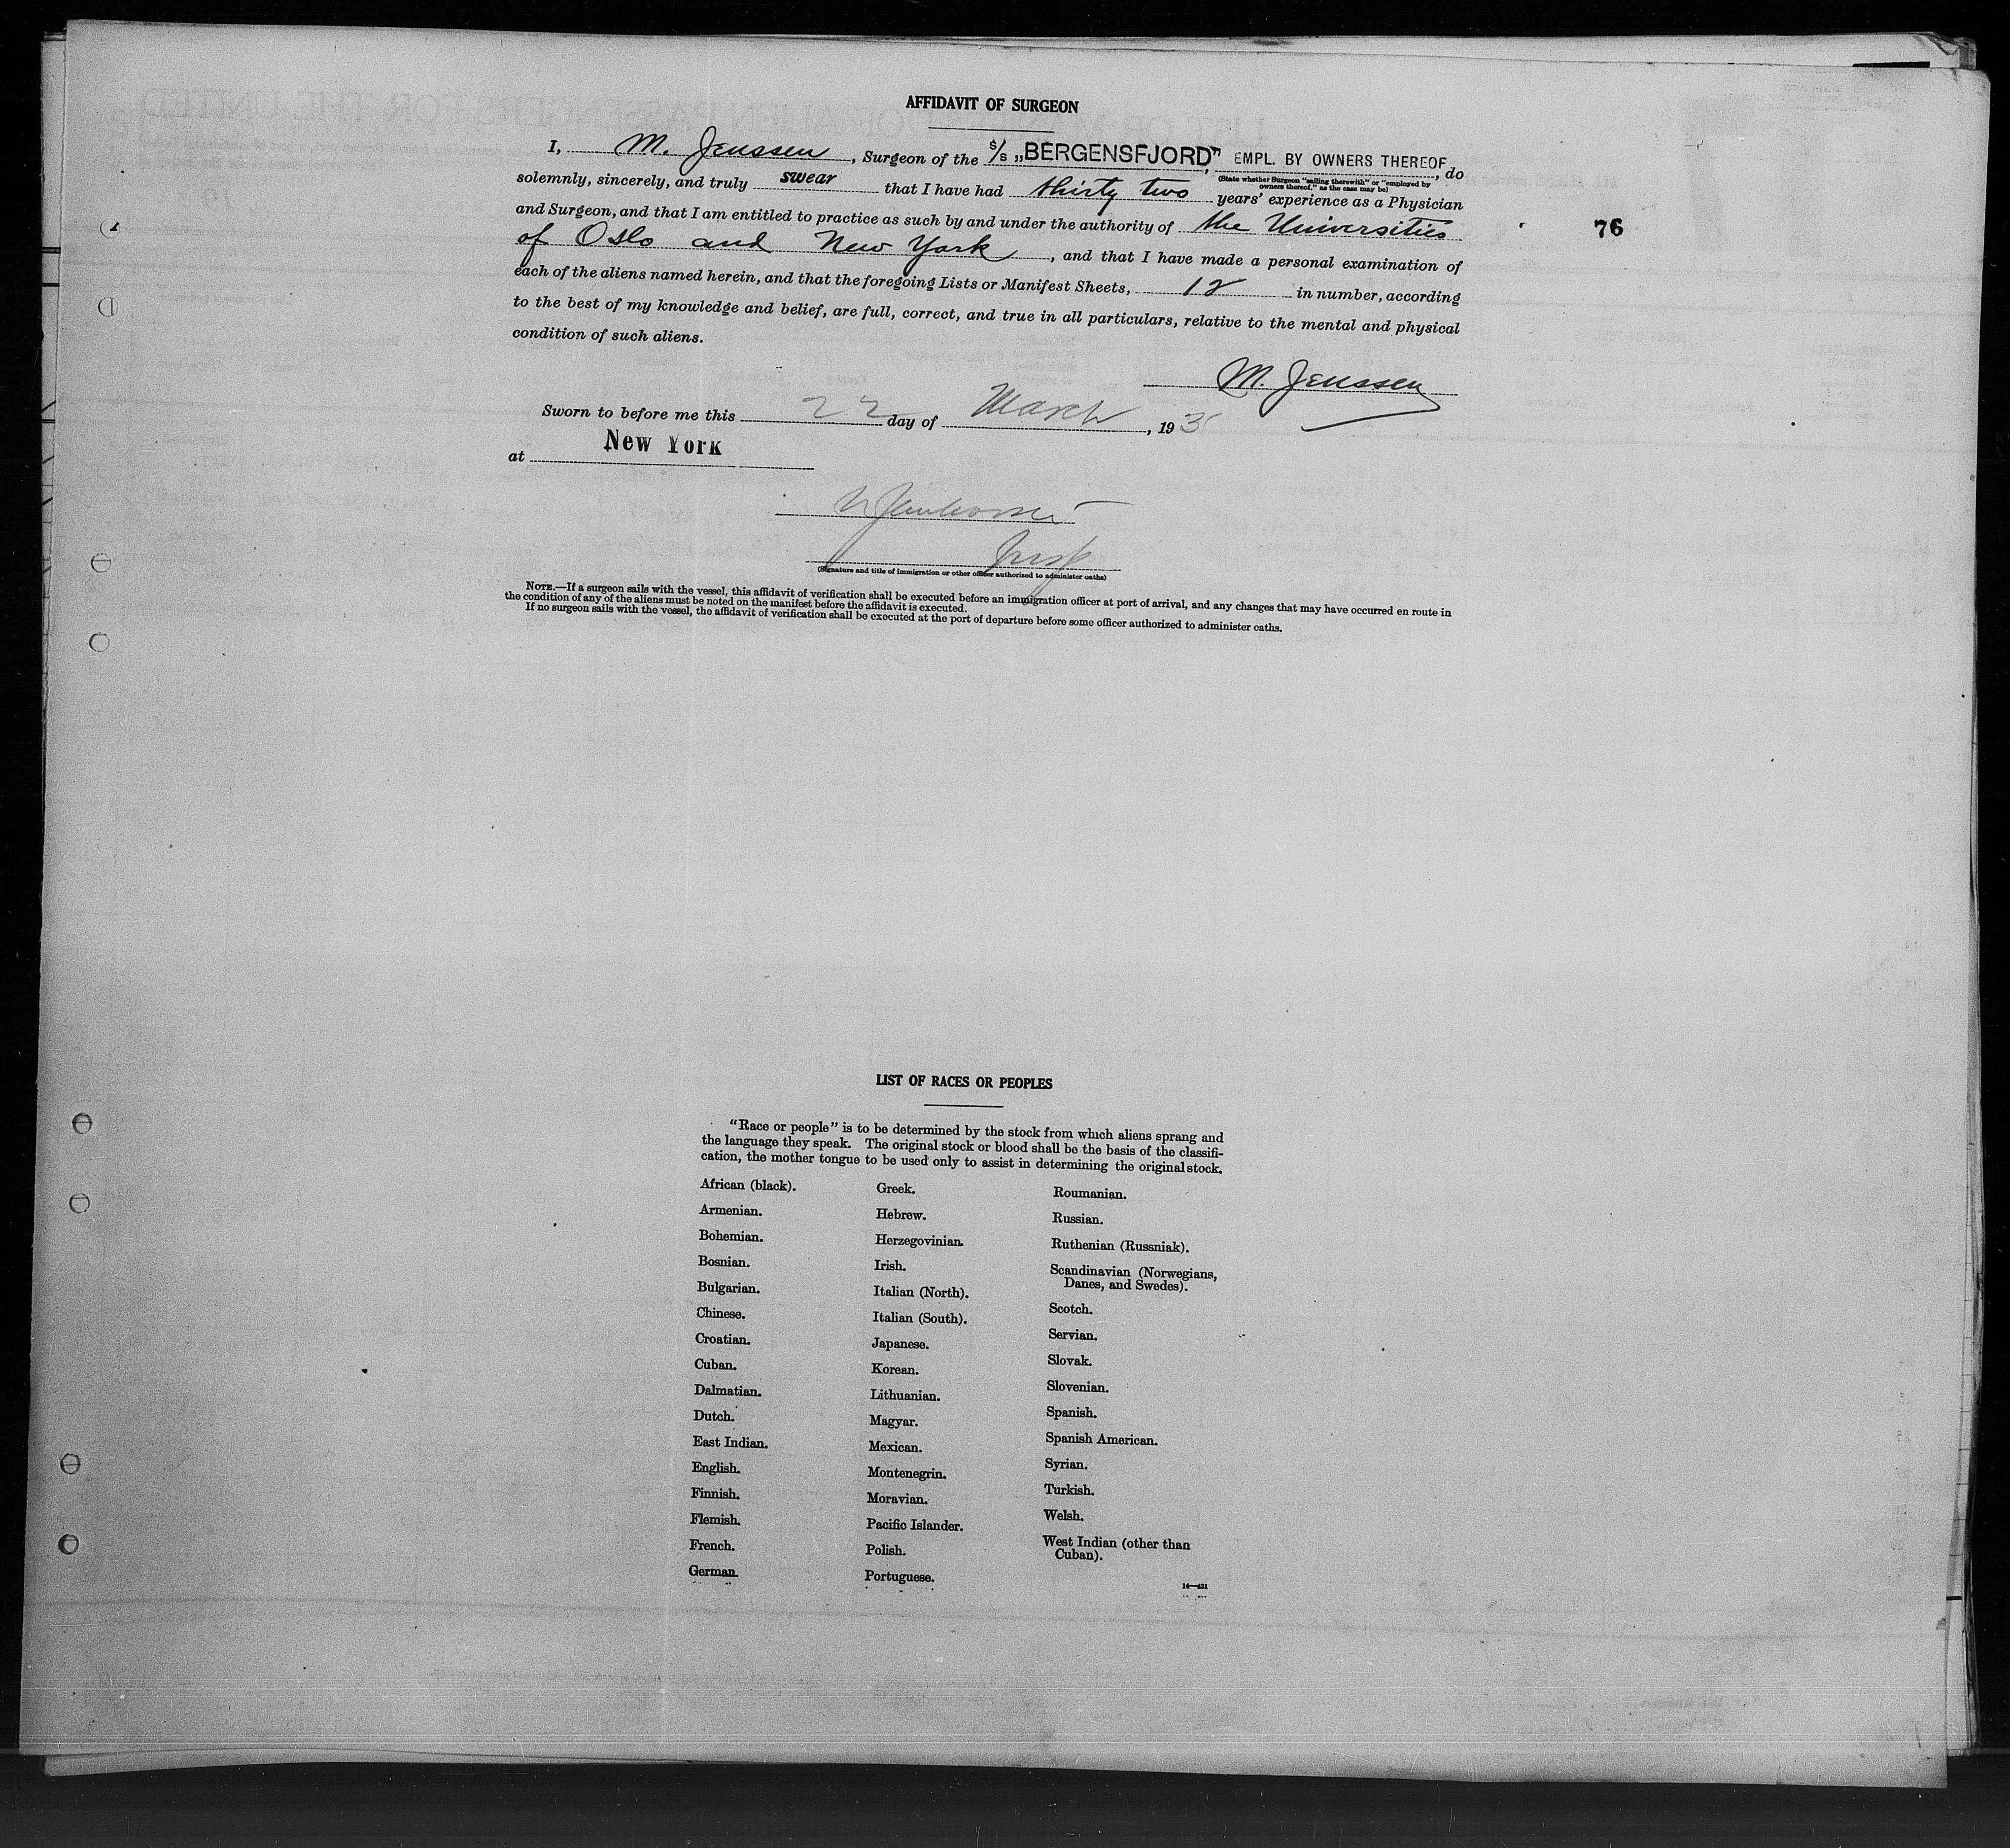 AFFIDAVIT OF SURGEON
I, M. Jenssen, Surgeon of the S/S „BERGENSFJORD”, EMPL. BY OWNERS THEREOF, do
(State whether Surgeon "sailing therewith" or "employed by
owners thereof," as the case may be)
solemnly, sincerely, and truly swear that I have had thirty two years' experience as a Physician
and Surgeon, and that I am entitled to practice as such by and under the authority of the Universities
of Oslo and New York, and that I have made a personal examination of
each of the aliens named herein, and that the foregoing Lists or Manifest Sheets, 12 in number, according
to the best of my knowledge and belief, are full, correct, and true in all particulars, relative to the mental and physical
condition of such aliens.
M. Jenssen
Sworn to before me this 22 day of March, 193
at New York
Insp
(Signature and title of immigration or other officer authorized to administer oaths)
NOTE.—If a surgeon sails with the vessel, this affidavit of verification shall be executed before an immigration officer at port of arrival, and any changes that may have occurred en route in
the condition of any of the aliens must be noted on the manifest before the affidavit is executed.
If no surgeon sails with the vessel, the affidavit of verification shall be executed at the port of departure before some officer authorized to administer oaths.
76
LIST OF RACES OR PEOPLES
"Race or people" is to be determined by the stock from which aliens sprang and
the language they speak. The original stock or blood shall be the basis of the classifi-
cation, the mother tongue to be used only to assist in determining the original stock.
African (black).
Armenian.
Bohemian.
Bosnian.
Bulgarian.
Chinese.
Croatian.
Cuban.
Dalmatian.
Dutch.
East Indian.
English.
Finnish.
Flemish.
French.
German.
Greek.
Hebrew.
Herzegovinian.
Irish.
Italian (North).
Italian (South).
Japanese.
Korean.
Lithuanian.
Magyar.
Mexican.
Montenegrin.
Moravian.
Pacific Islander.
Polish.
Portuguese.
Roumanian.
Russian.
Ruthenian (Russniak).
Scandinavian (Norwegians,
Danes, and Swedes).
Scotch.
Servian.
Slovak.
Slovenian.
Spanish.
Spanish American.
Syrian.
Turkish.
Welsh.
West Indian (other than
Cuban).
14—431